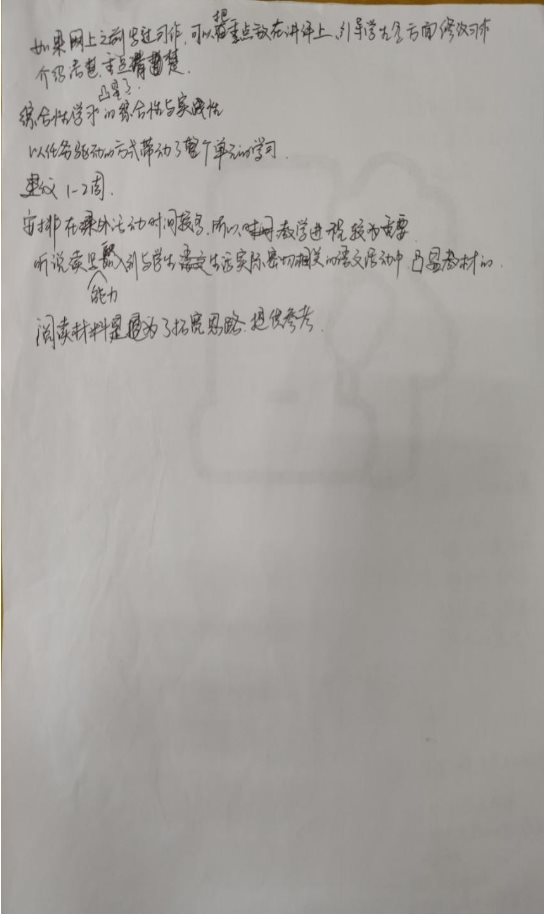 如果网上之前写过习作,可以把重点放在讲评上,引导学生全方面修改习作
介绍清楚,重点清楚
凸显了
综合性学习的综合性与实践性
以任务驱动的方式带动了整个单元的学习.
建议1-2周.
安排在课外活动时间较多,所以,时间教学进程较为重要
听说读写融入到与学生语文生活实际密切相关的语文活动中.凸显教材的.
能力
阅读材料是为了拓宽思路.提供参考.